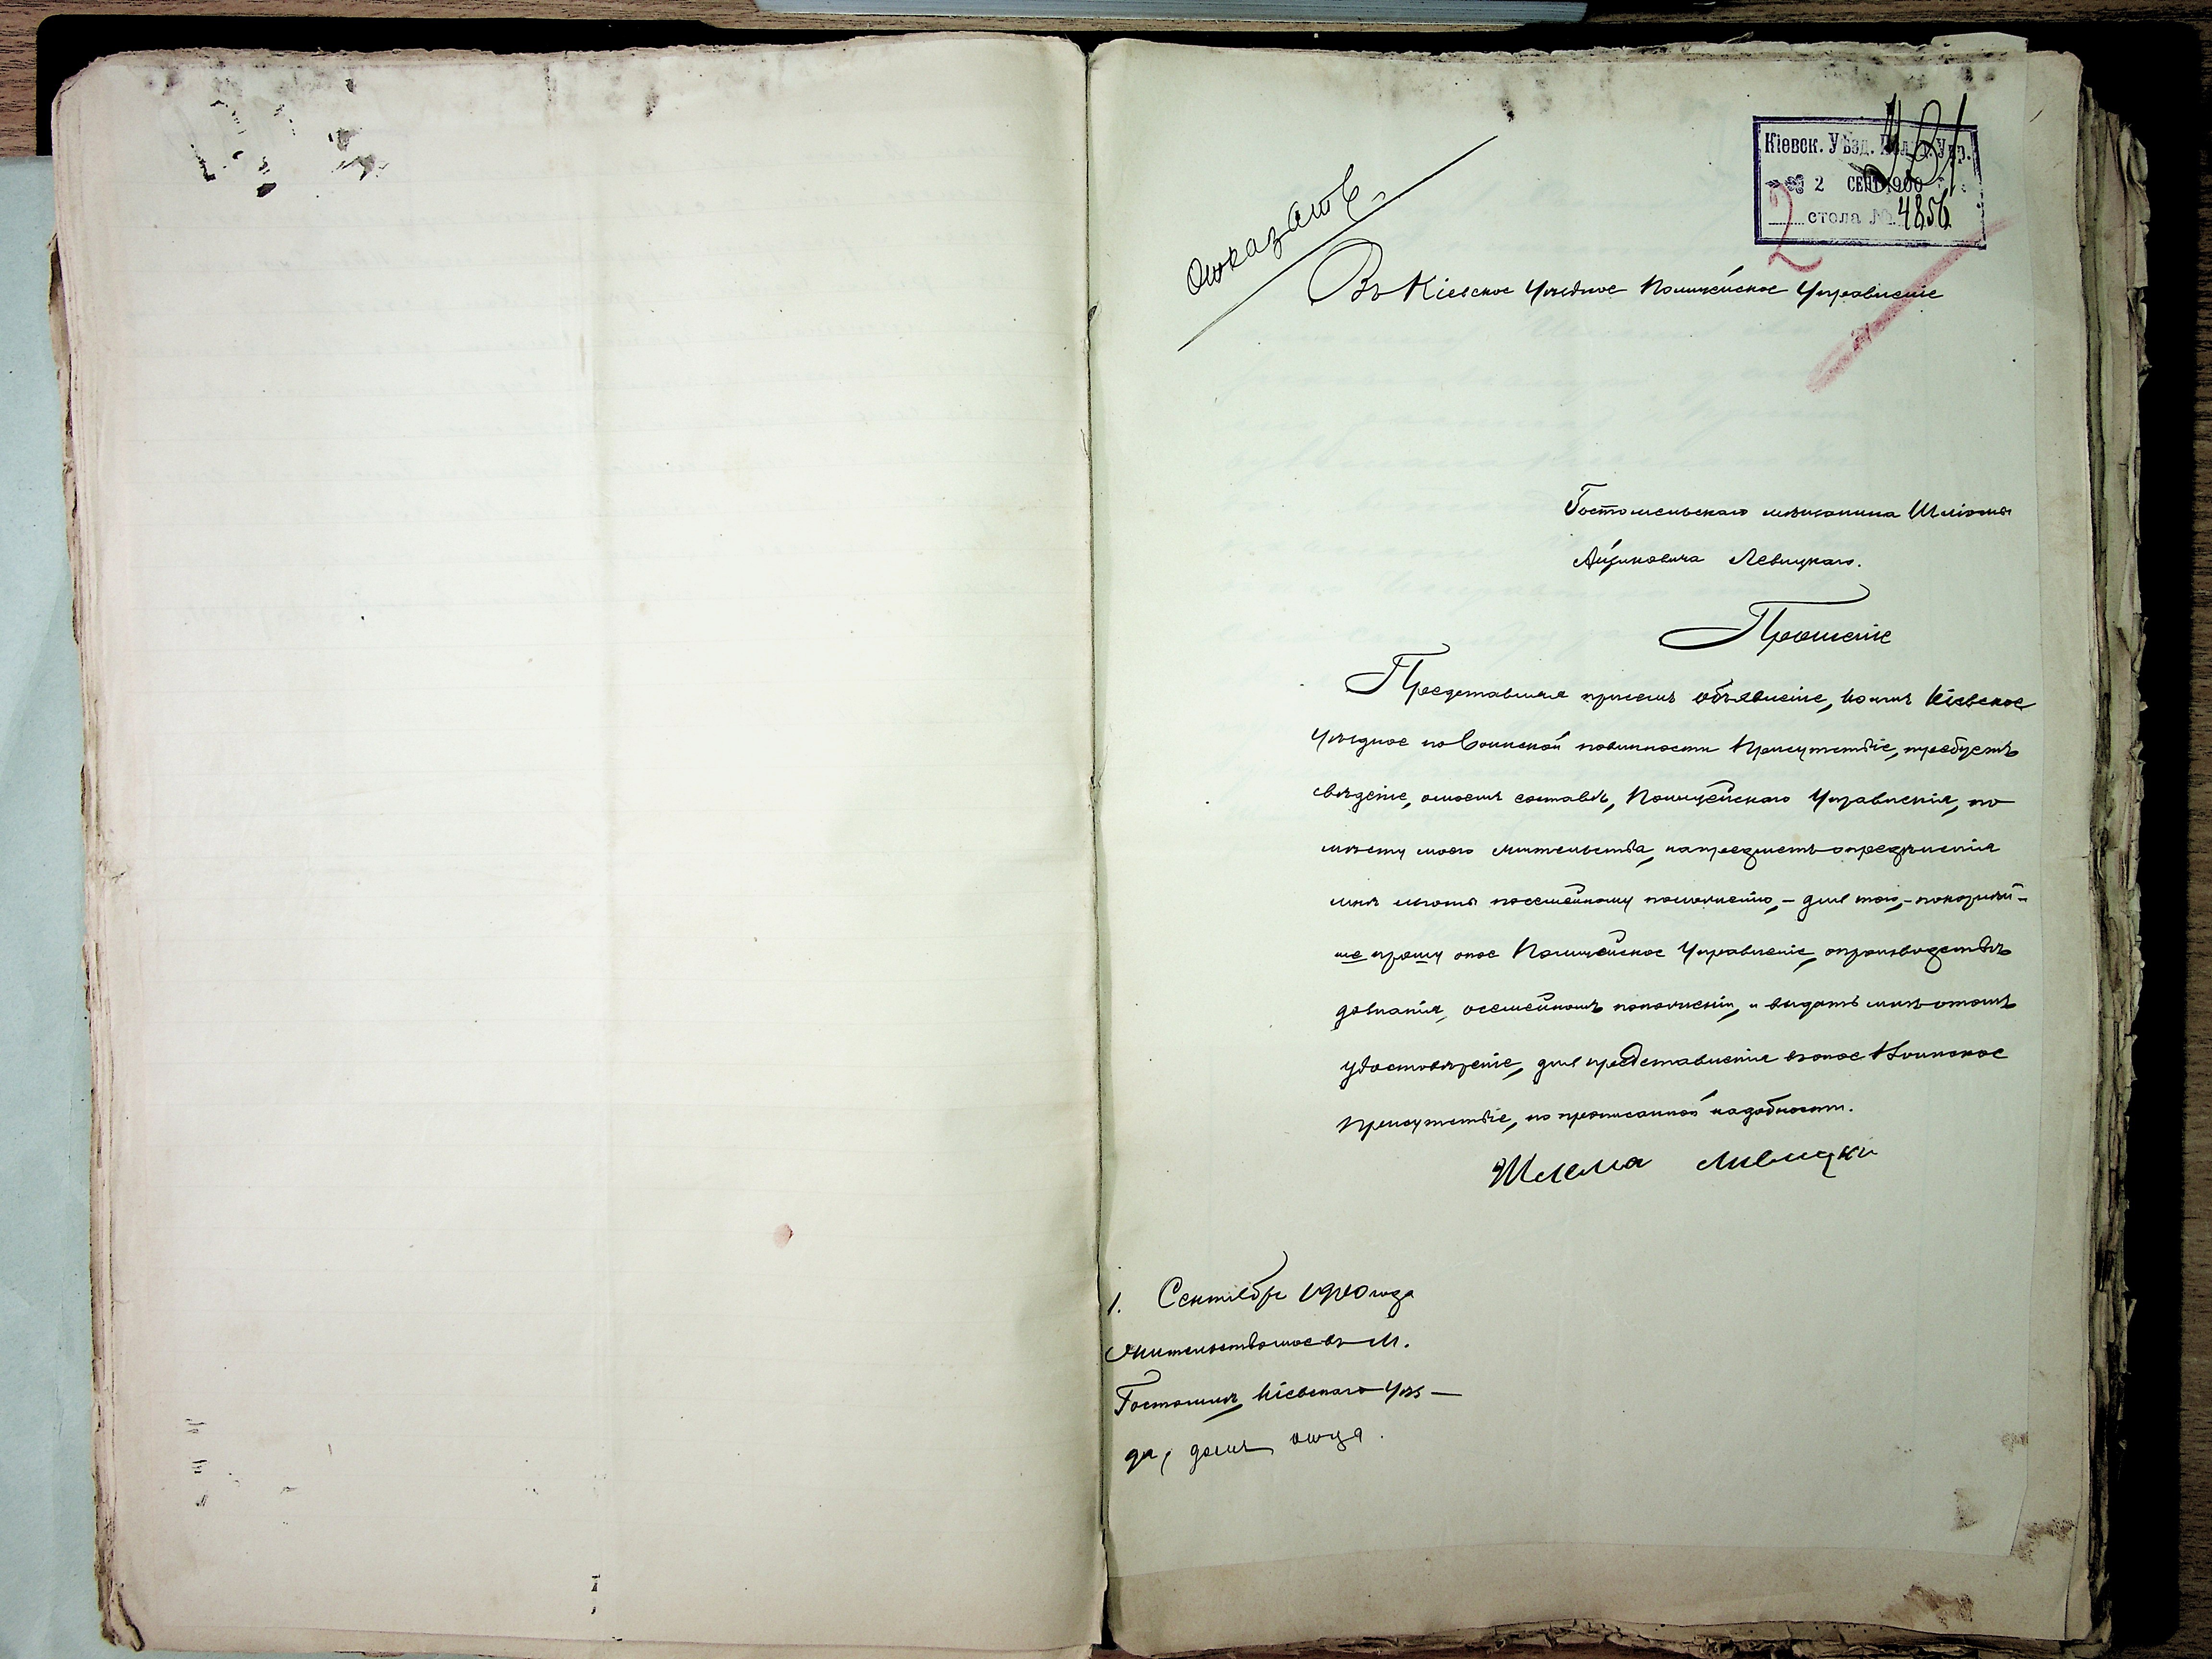 Кіевск. Уѣзд. Пол. Упр.
2 СЕН 1900
2 стола № 4856
отказать
Въ Кіевское Уѣздное Полицейское Управленіе
Гостомельскаго мѣщанина Шліомы
Айзиковича Левицкаго.
Прошеніе
Представляя присемъ объявленіе, коимъ Кіевское
Уѣздное по воинской повинности Присутствіе, требуетъ
свѣденіе, омоемъ составѣ, Полицейскаго Управленія, по
мѣсту моего жительства, напредметъ опредѣленія
мнѣ льготы посемейному положенію, – для того, – покорнѣй-
ше прошу оное Полицейское Управленіе, опроизводствѣ
дознанія, осемейномъ положеніи, и выдать мнѣ отомъ
удостовѣреніе, для представленія воное Воинское
Присутствіе, по прописанной надобности.
Шлема Ливицки
1. Сентебре 1900 года
Жительство мое въ М.
Гостомлѣ, Кіевскаго Уѣз–
да, домъ отца.